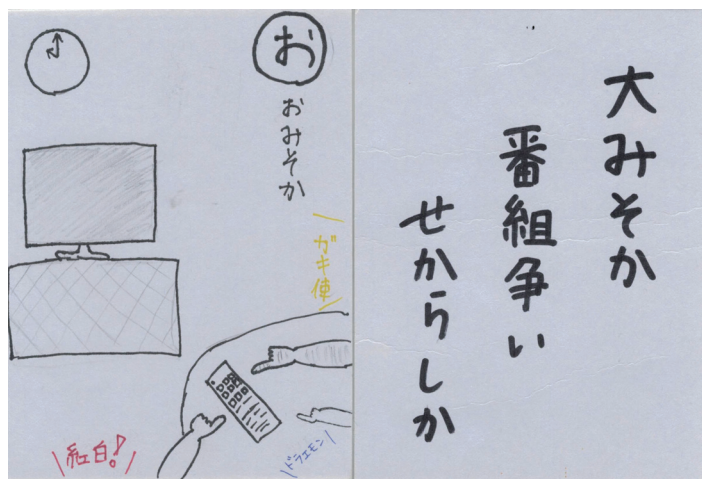 お
おみそか
ガキ使
紅白!
ドラエモン
大みそか
番組争い
せからしか